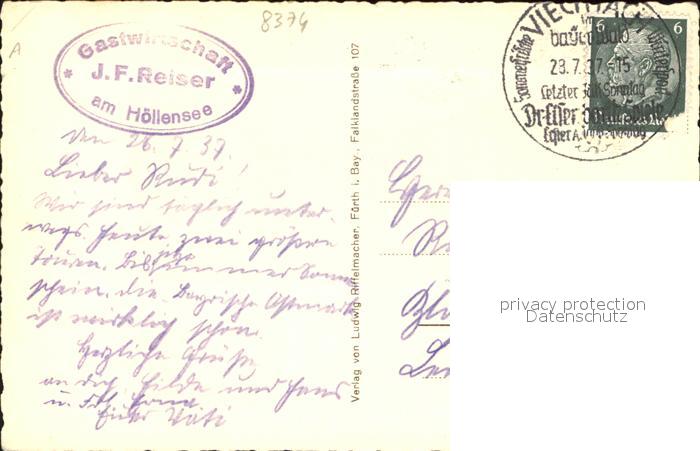 A
8374
Gastwirtschaft
* J.F.Reiser *
am Höllensee
VIECHTACH
im
bayer. Wald
28.7.37.-15
Sommerfrische
Letzter Juli Sonntag
6 6
den 26.7.37.
Lieber Rudi!
Wir sind täglich unter-
wegs. Heute zwei größere
Touren. Bis immer Sonnen
schein. die Bayrische Ostmark
ist wirklich schön.
Herzliche Grüße
an dich, Hilde und Hans
u. Frl.
Euer Vati
Verlag von Ludwig Riffelmacher, Fürth i. Bay., Falklandstraße 107
privacy protection
Datenschutz